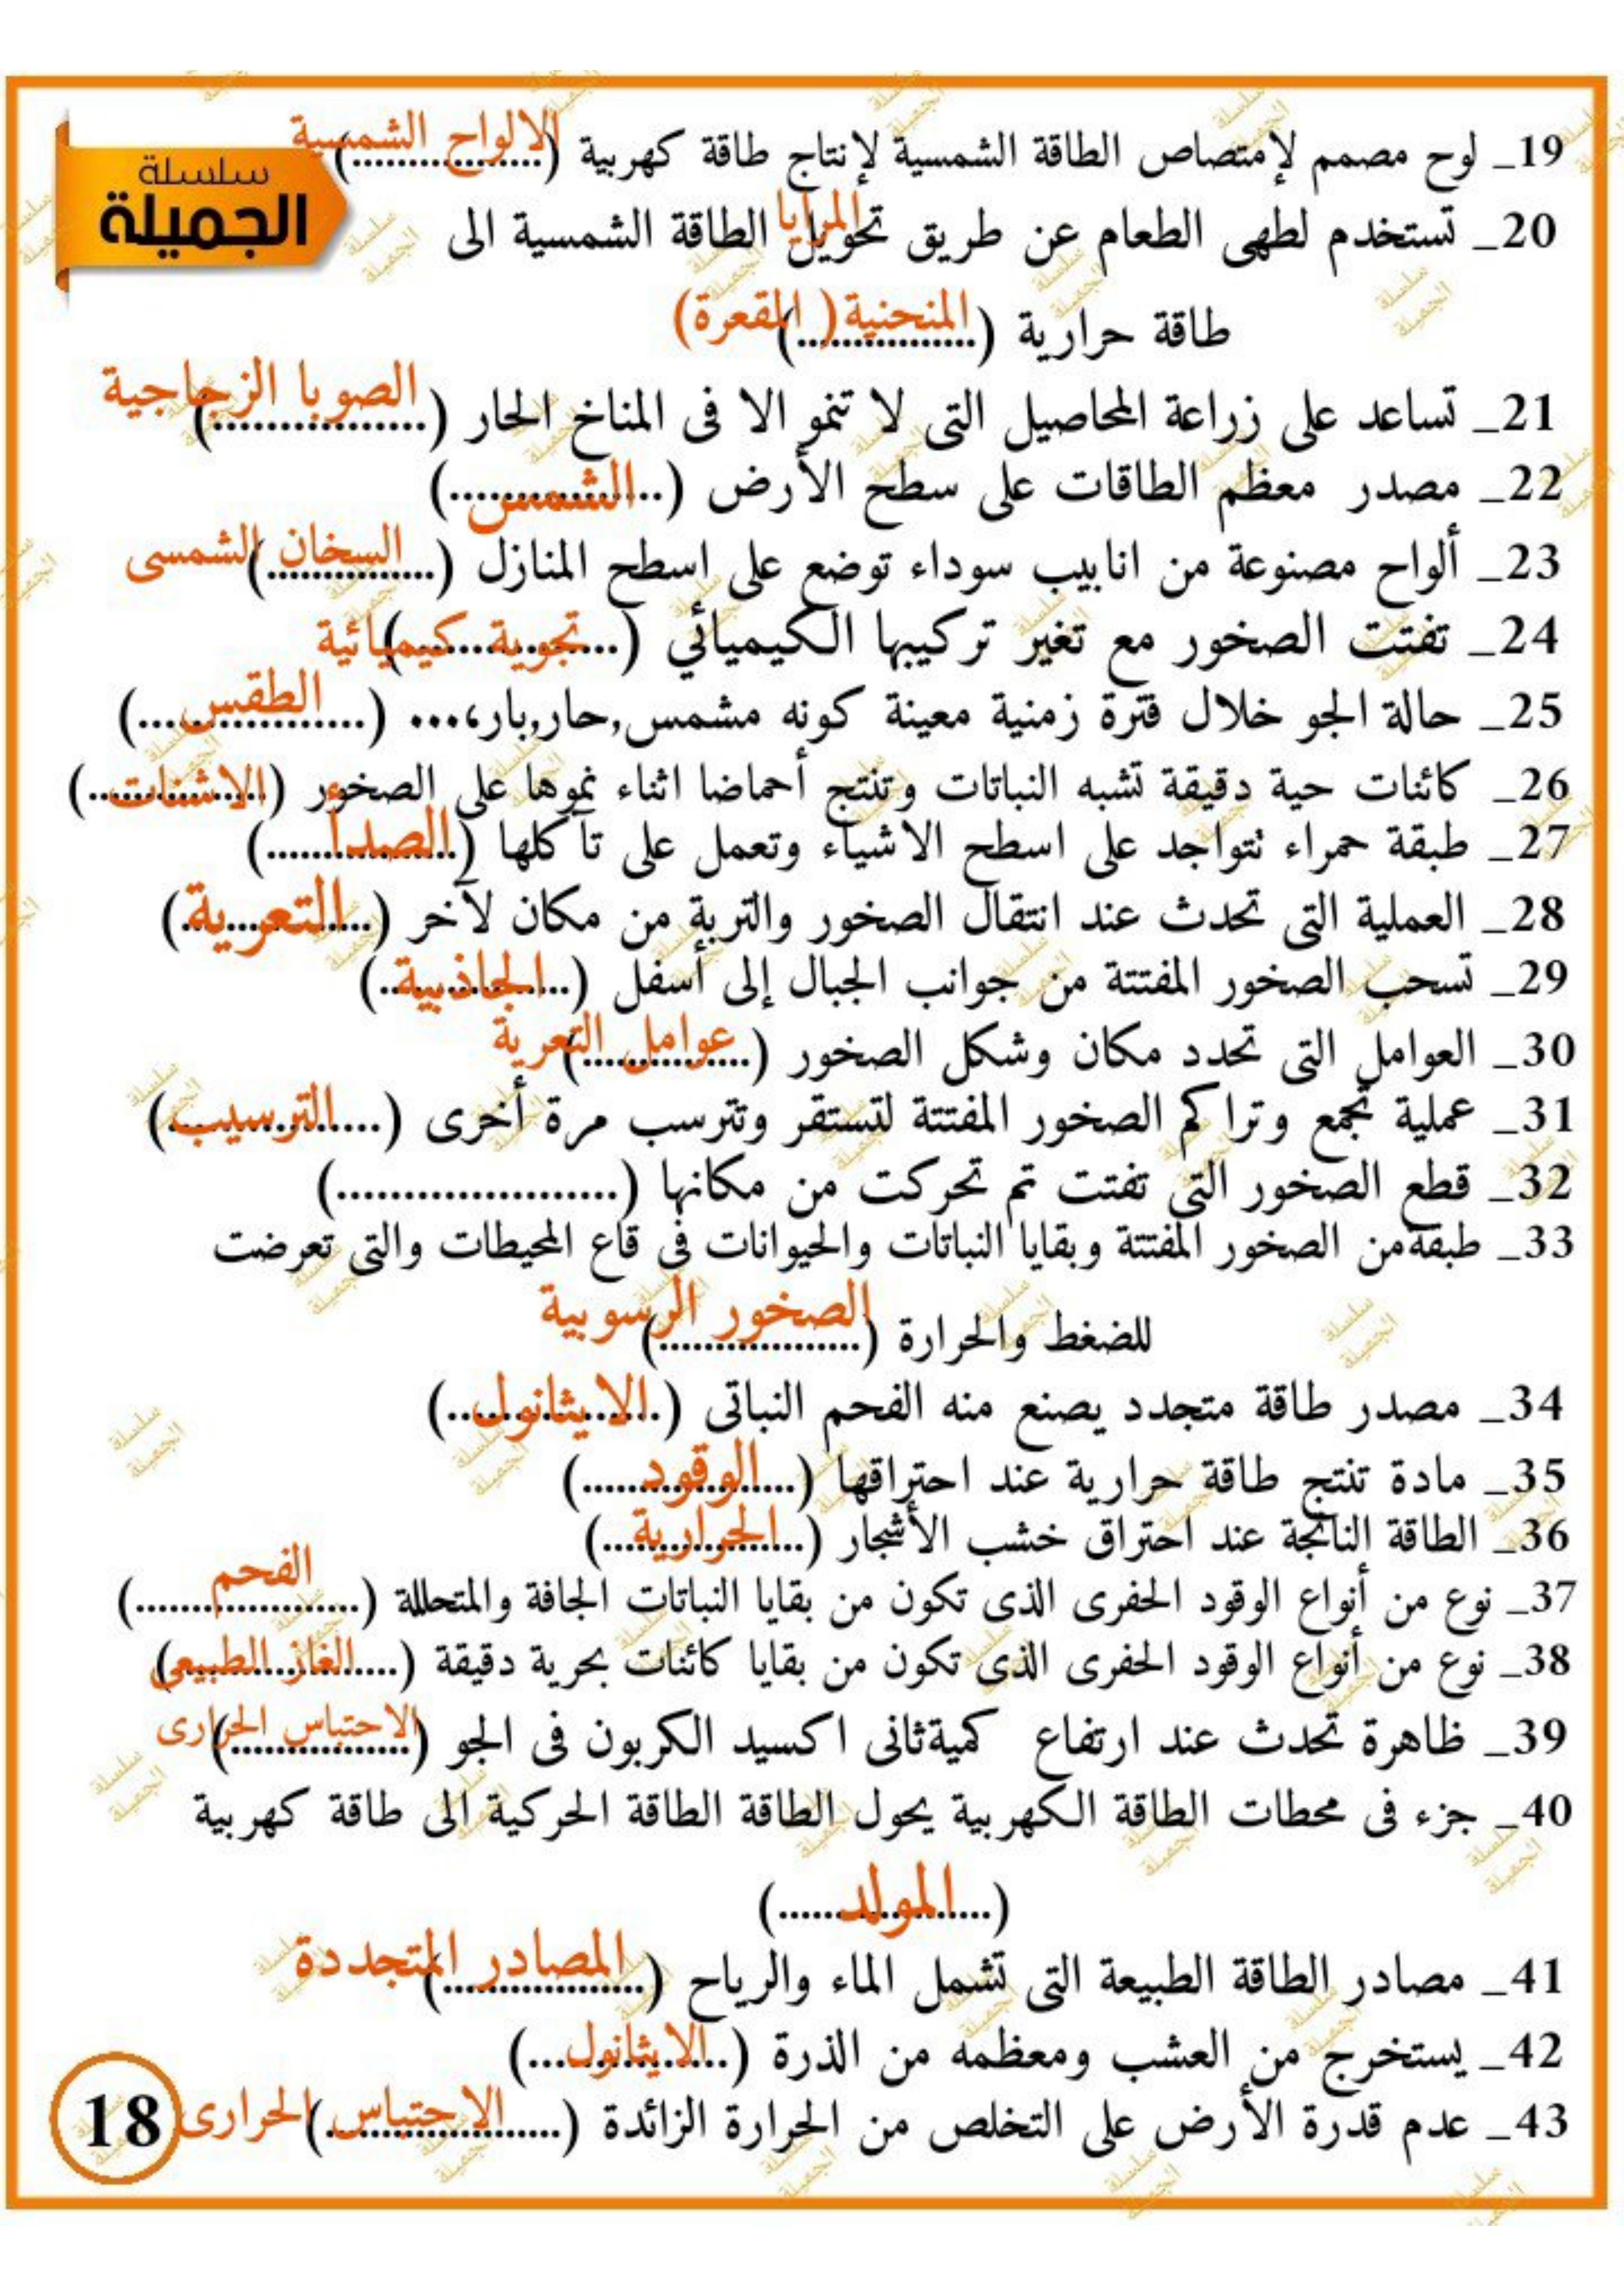 سلسلة
الجميلة
19_ لوح مصمم لإمتصاص الطاقة الشمسية لإنتاج طاقة كهربية (الالواح الشمسية)
20_ تستخدم لطهى الطعام عن طريق تحويل الطاقة الشمسية الى
طاقة حرارية (المرايا المنحنية (المقعرة))
21_ تساعد على زراعة المحاصيل التى لا تنمو الا فى المناخ الحار (الصوبا الزجاجية)
22_ مصدر معظم الطاقات على سطح الأرض (الشمس)
23_ ألواح مصنوعة من انابيب سوداء توضع على اسطح المنازل (السخان الشمسى)
24_ تفتت الصخور مع تغير تركيبها الكيميائي (تجوية كيميائية)
25_ حالة الجو خلال فترة زمنية معينة كونه مشمس,حار,بار،... (الطقس)
26_ كائنات حية دقيقة تشبه النباتات وتنتج أحماضا اثناء نموها على الصخور (الاشنات)
27_ طبقة حمراء تتواجد على اسطح الاشياء وتعمل على تآكلها (الصدأ)
28_ العملية التى تحدث عند انتقال الصخور والتربة من مكان لآخر (التعرية)
29_ تسحب الصخور المفتتة من جوانب الجبال إلى أسفل (الجاذبية)
30_ العوامل التى تحدد مكان وشكل الصخور (عوامل التعرية)
31_ عملية تجمع وتراكم الصخور المفتتة لتستقر وتترسب مرة أخرى (الترسيب)
32_ قطع الصخور التى تفتت تم تحركت من مكانها (.....................)
33_ طبقةمن الصخور المفتتة وبقايا النباتات والحيوانات فى قاع المحيطات والتى تعرضت
للضغط والحرارة (الصخور الرسوبية)
34_ مصدر طاقة متجدد يصنع منه الفحم النباتى (الايثانول)
35_ مادة تنتج طاقة حرارية عند احتراقها (الوقود)
36_ الطاقة الناتجة عند احتراق خشب الأشجار (الحرارية)
37_ نوع من أنواع الوقود الحفرى الذى تكون من بقايا النباتات الجافة والمتحللة (الفحم)
38_ نوع من أنواع الوقود الحفرى الذى تكون من بقايا كائنات بحرية دقيقة (الغاز الطبيعى)
39_ ظاهرة تحدث عند ارتفاع كميةثانى اكسيد الكربون فى الجو (الاحتباس الحرارى)
40_ جزء فى محطات الطاقة الكهربية يحول الطاقة الطاقة الحركية الى طاقة كهربية
(المولد)
41_ مصادر الطاقة الطبيعة التى تشمل الماء والرياح (المصادر المتجددة)
42_ يستخرج من العشب ومعظمه من الذرة (الايثانول)
43_ عدم قدرة الأرض على التخلص من الحرارة الزائدة (الاحتباس الحرارى)
18